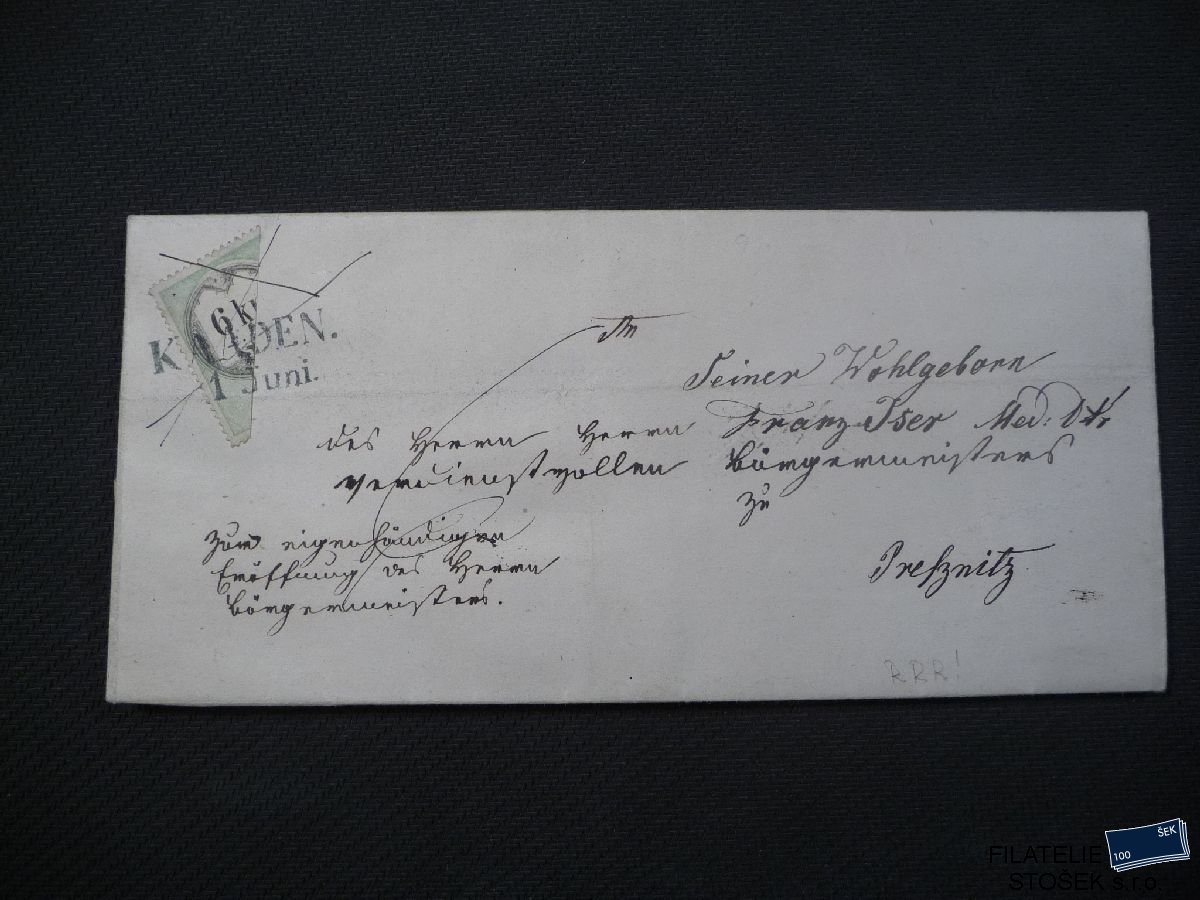 6 kr
KAADEN.
1 Juni.
An
Seiner Wohlgeborn
des Herrn Herrn Franz Iser Med: Dtr
verdienstvollen Bürgermeisters
zu
Zum eigenhändigen
Eröffnung des Herrn
Bürgermeisters.
Preßnitz
RRR!
100 ŠEK
FILATELIE
STOŠEK s.r.o.